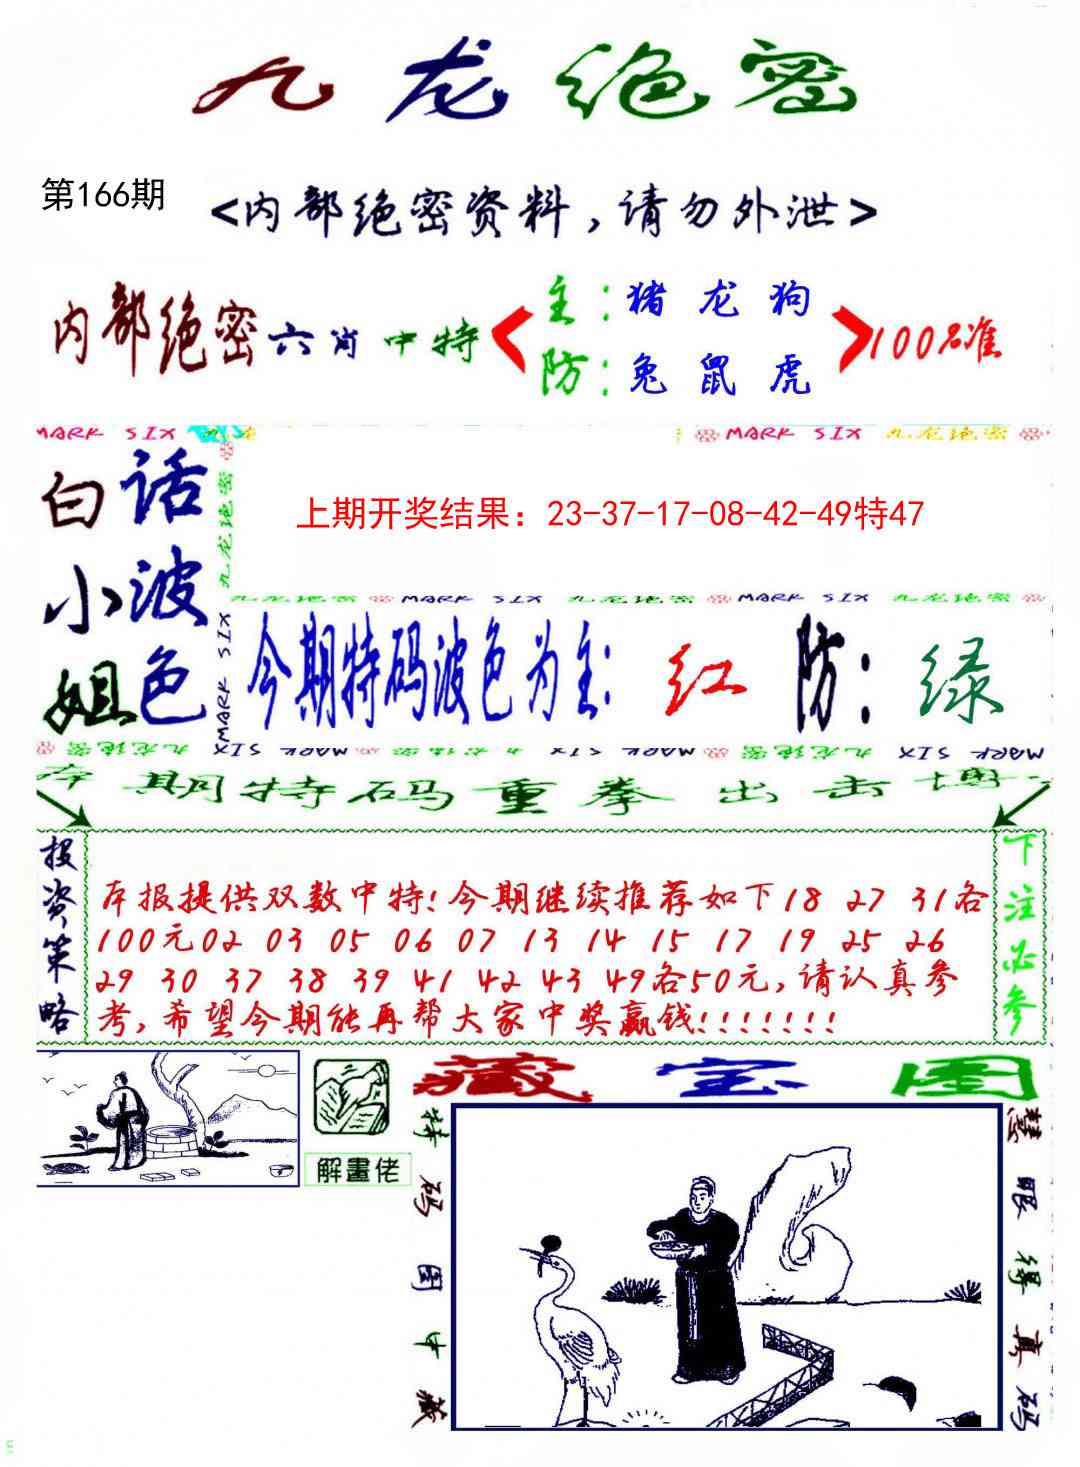 九龙绝密
第166期
<内部绝密资料,请勿外泄>
内部绝密六肖中特
主:猪 龙 狗
防:兔 鼠 虎
100%准
MARK SIX 九龙
MARK SIX 九龙绝密
白话
小波
姐色
九龙绝密
MARK SIX
上期开奖结果：23-37-17-08-42-49特47
九龙绝密 MARK SIX 九龙绝密 MARK SIX 九龙绝密
今期特码波色为主: 红 防: 绿
九龙绝密 MARK SIX 九龙绝密 MARK SIX 九龙绝密 MARK SIX
本期特码重拳出击博
投资策略
本报提供双数中特!今期继续推荐如下18 27 31各
100元02 03 05 06 07 13 14 15 17 19 25 26
29 30 37 38 39 41 42 43 49各50元,请认真参
考,希望今期能再帮大家中奖赢钱!!!!!!!
下注必参
解畫佬
藏宝图
特码图中藏
慧眼得真码